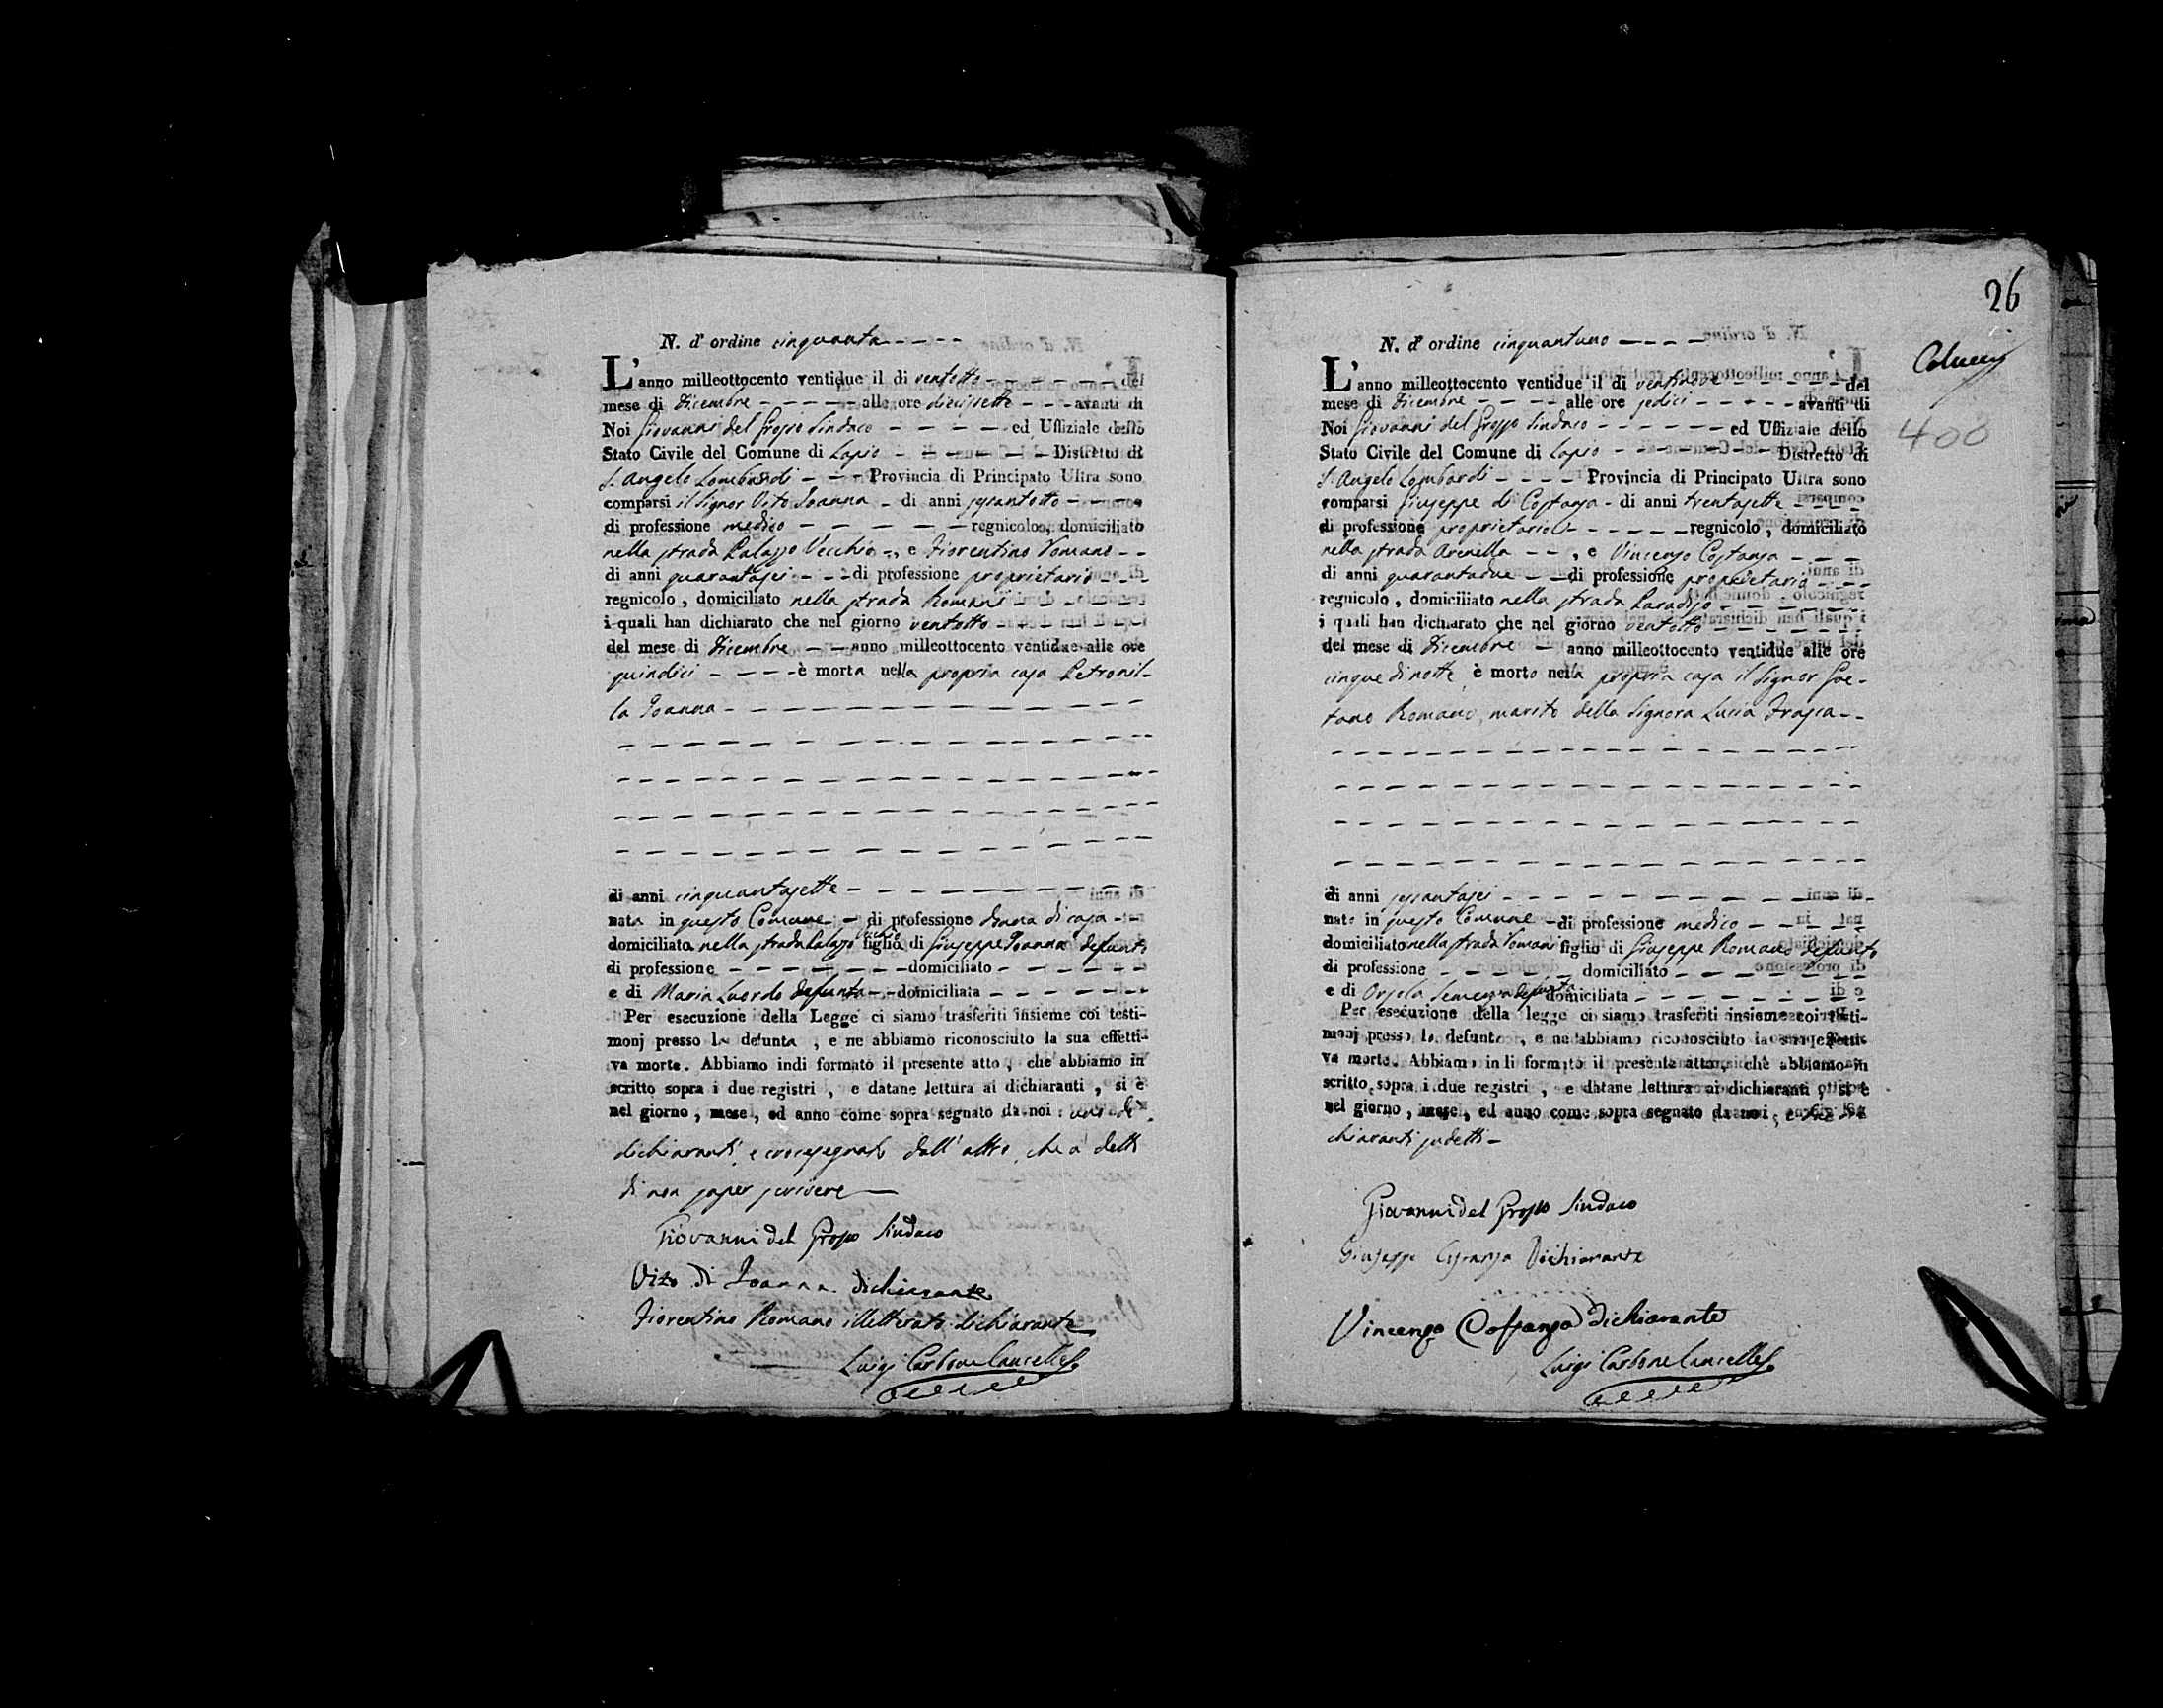 N. d' ordine cinquanta
L'anno milleottocento ventidue il di ventotto del
mese di Dicembre alle ore diecissette avanti di
Noi Giovanni del Grosso Sindaco ed Uffiziale dello
Stato Civile del Comune di Lapio Distretto di
S. Angelo Lombardi Provincia di Principato Ultra sono
comparsi il Signor Vito Joanna di anni sessantotto
di professione medico regnicolo, domiciliato
nella strada Palazzo Vecchio, e Fiorentino Romano
di anni quarantasei di professione proprietario
regnicolo, domiciliato nella strada Romani
i quali han dichiarato che nel giorno ventotto
del mese di Dicembre anno milleottocento ventidue alle ore
quindici è morta nella propria casa Petronil-
la Joanna
di anni cinquantasette
nata in questo Comune di professione donna di casa
domiciliato nella strada Palazzo Vecchio figlia di Giuseppe Joanna defunto
di professione domiciliato
e di Maria Luordo defunta domiciliata
Per esecuzione della Legge ci siamo trasferiti insieme coi testi-
monj presso la defunta, e ne abbiamo riconosciuto la sua effetti-
va morte. Abbiamo indi formato il presente atto, che abbiamo in
scritto sopra i due registri, e datane lettura ai dichiaranti, si è
nel giorno, mese, ed anno come sopra segnato da noi, uno de'
dichiaranti, e crocesegnato dall' altro, che à detto
di non saper scrivere
Giovanni del Grosso Sindaco
Vito di Joanna dichiarante
Fiorentino Romano illetterato dichiarante
Luigi Carbone Cancelliere
26
Colucci
400
N. d' ordine cinquantuno
L'anno milleottocento ventidue il di ventinove del
mese di Dicembre alle ore sedici avanti di
Noi Giovanni del Grosso Sindaco ed Uffiziale dello
Stato Civile del Comune di Lapio Distretto di
S. Angelo Lombardi Provincia di Principato Ultra sono
comparsi Giuseppe di Costanza di anni trentasette
di professione proprietario regnicolo, domiciliato
nella strada Arenella, e Vincenzo Costanza
di anni quarantadue di professione proprietario
regnicolo, domiciliato nella strada Paradiso
i quali han dichiarato che nel giorno ventotto
del mese di Dicembre anno milleottocento ventidue alle ore
cinque di notte è morto nella propria casa il Signor Gae-
tano Romano, marito della Signora Lucia Frasca
di anni sessantasei
nato in questo Comune di professione medico
domiciliato nella strada Romani figlio di Giuseppe Romano defunto
di professione domiciliato
e di Orsola defunta domiciliata
Per esecuzione della legge ci siamo trasferiti insieme coi testi-
monj presso lo defunto, e ne abbiamo riconosciuto la sua effetti-
va morte. Abbiamo indi formato il presente atto, che abbiamo in
scritto sopra i due registri, e datane lettura ai dichiaranti, si è
nel giorno, mese, ed anno come sopra segnato da noi, e due di-
chiaranti sudetti
Giovanni del Grosso Sindaco
Giuseppe Costanza Dichiarante
Vincenzo Costanza Dichiarante
Luigi Carbone Cancelliere